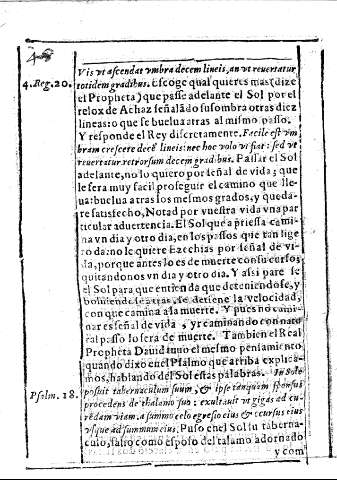 Vis vt ascendat vmbra decem lineis, an vt reuertatur
4. Reg. 20. totidem gradibus. Escoge qual quieres mas (dize
el Propheta) que passe adelante el Sol por el
relox de Achaz señalãdo su sombra otras diez
lineas: o que se buelua atras al mismo passo.
Y responde el Rey discretamente. Facile est vm
bram crescere decẽ lineis: nec hoc volo vt fiat: sed vt
reuertatur retrorsum decem gradibus. Passar el Sol
adelante, no lo quiero por señal de vida; que
le sera muy facil proseguir el camino que lle-
ua: buelua atras los mesmos grados, y queda-
re satisfecho, Notad por vuestra vida vna par
ticular aduertencia. El Sol que a priessa cami-
na vn dia y otro dia, en los passos que tan lige
ro da: no le quiere Ezechias por señal de vi-
da, porque antes lo es de muerte con su curso
quitandonos vn dia y otro dia. Y assi pare se
el Sol para que entienda que deteniendose, y
boluiendose atras, se detiene la velocidad,
con que camina a la muerte. Y pues no cami-
nar es señal de vida, y caminando con natu
ral passo lo sera de muerte. Tambien el Real
Propheta Dauid tuuo el mesmo pensamiento,
quando dixo en el Psalmo que arriba explica-
mos, hablando del Sol estas palabras. In Sole
Psalm. 18. posuit tabernaculum suum, & ipse tanquam sponsus
procedens de thalamo suo: exultauit vt gigas ad cu-
rẽdam viam. a summo celo egressio eius & cursus eius
vsque ad summum eius. Puso en el Sol su taberna-
culo, salio como esposo del talamo adornado
y com